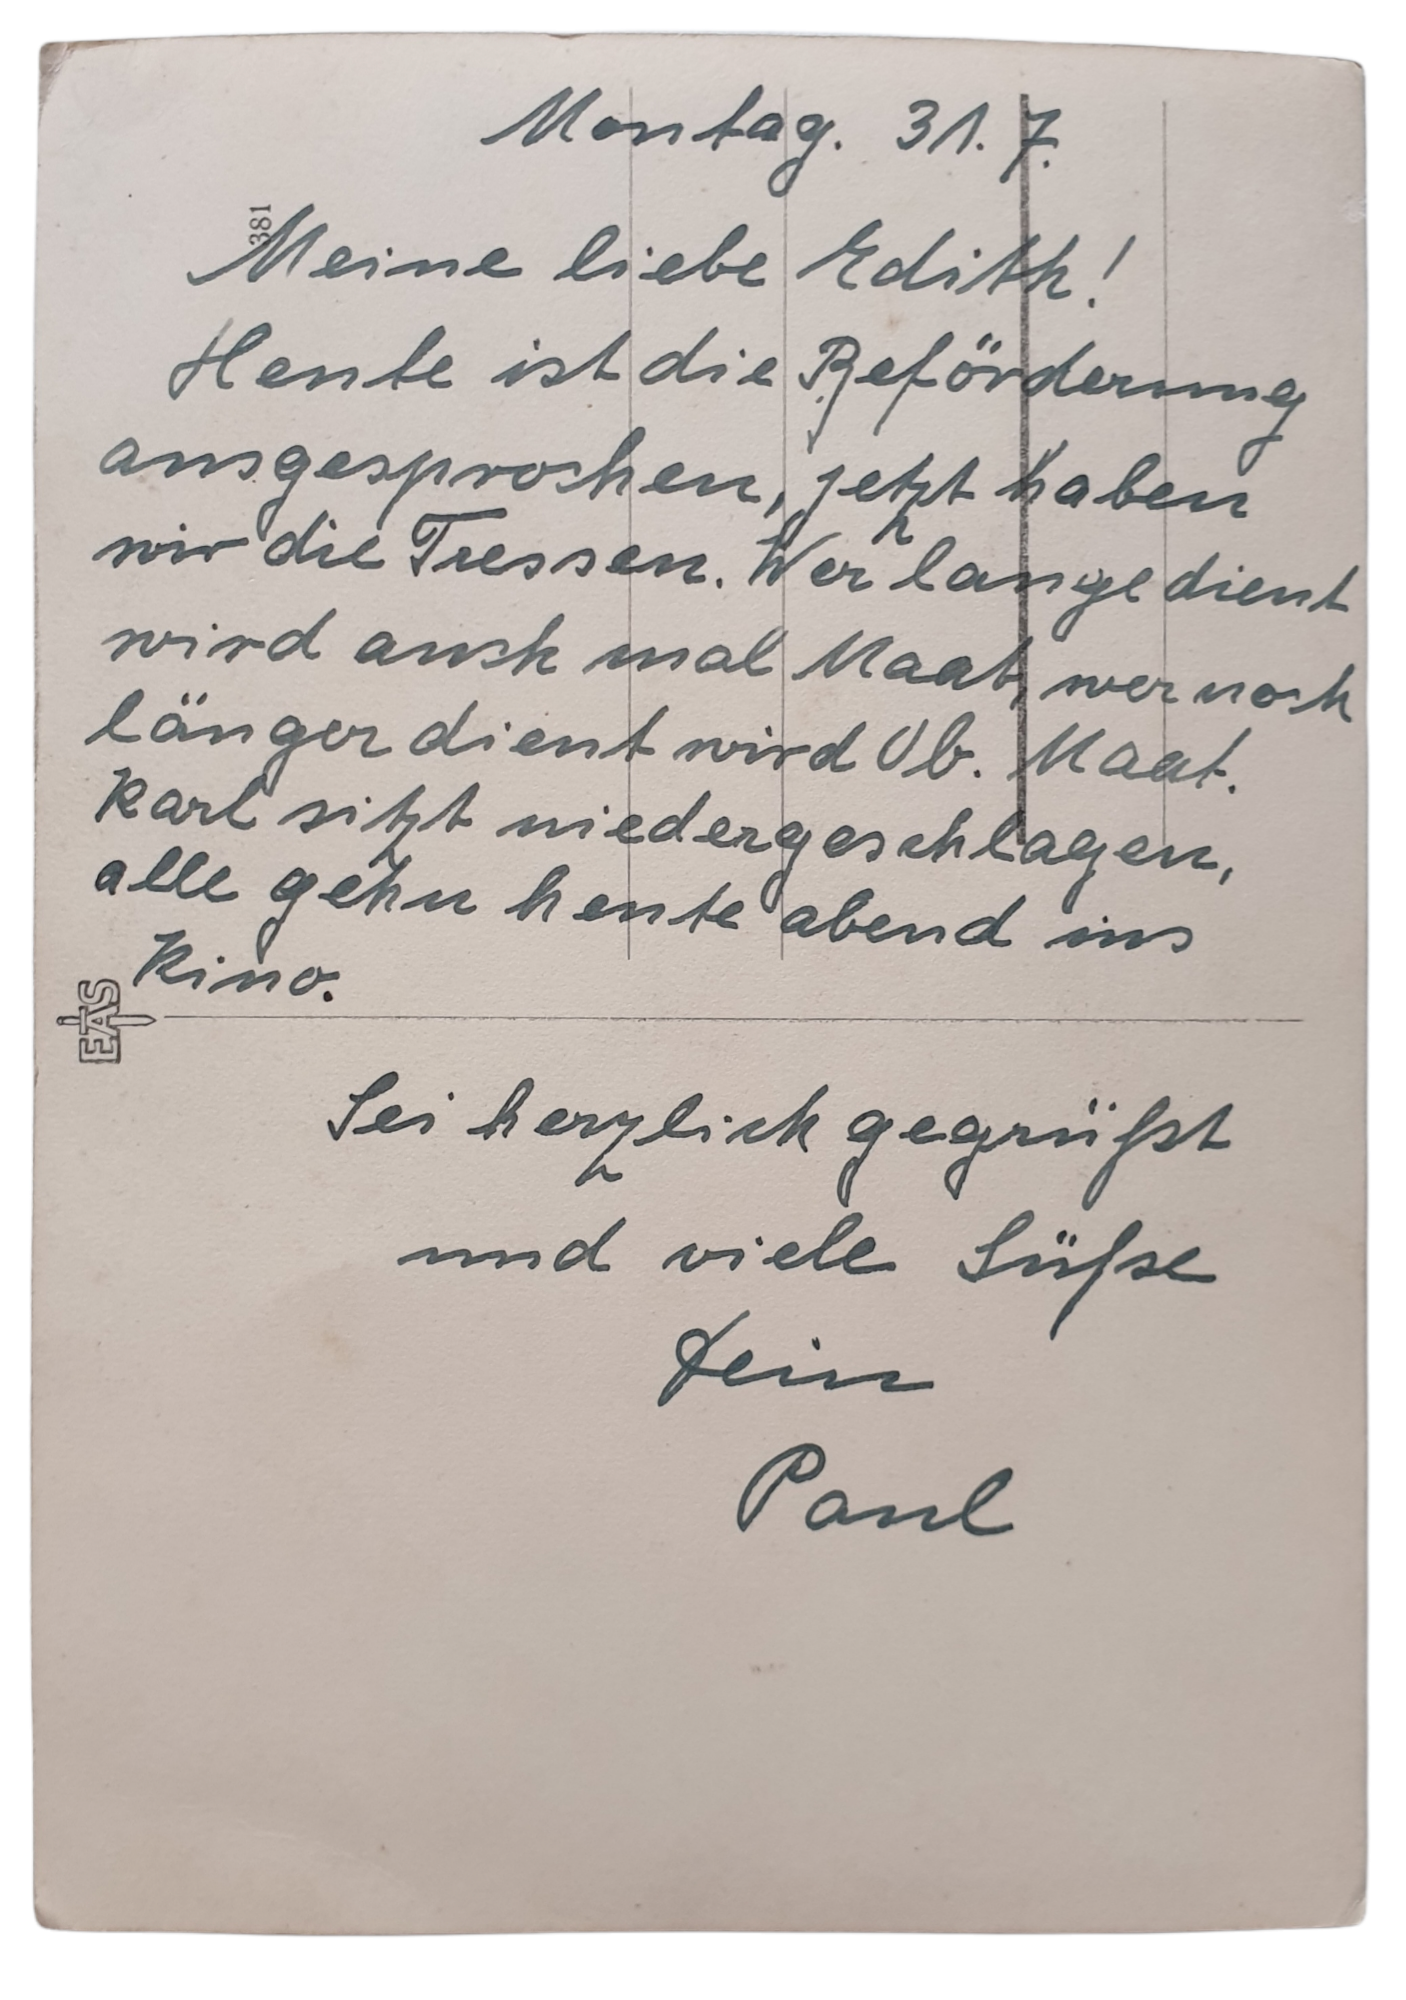 Montag. 31. 7.
381
Meine liebe Edith!
Heute ist die Beförderung
ausgesprochen, jetzt haben
wir die Tressen. Wer lange dient
wird auch mal Maat, wer noch
länger dient wird Ob. Maat.
Karl sitzt niedergeschlagen,
alle gehn heute abend ins
Kino.
EAS
Sei herzlich gegrüßt
und viele Süße
Dein
Paul